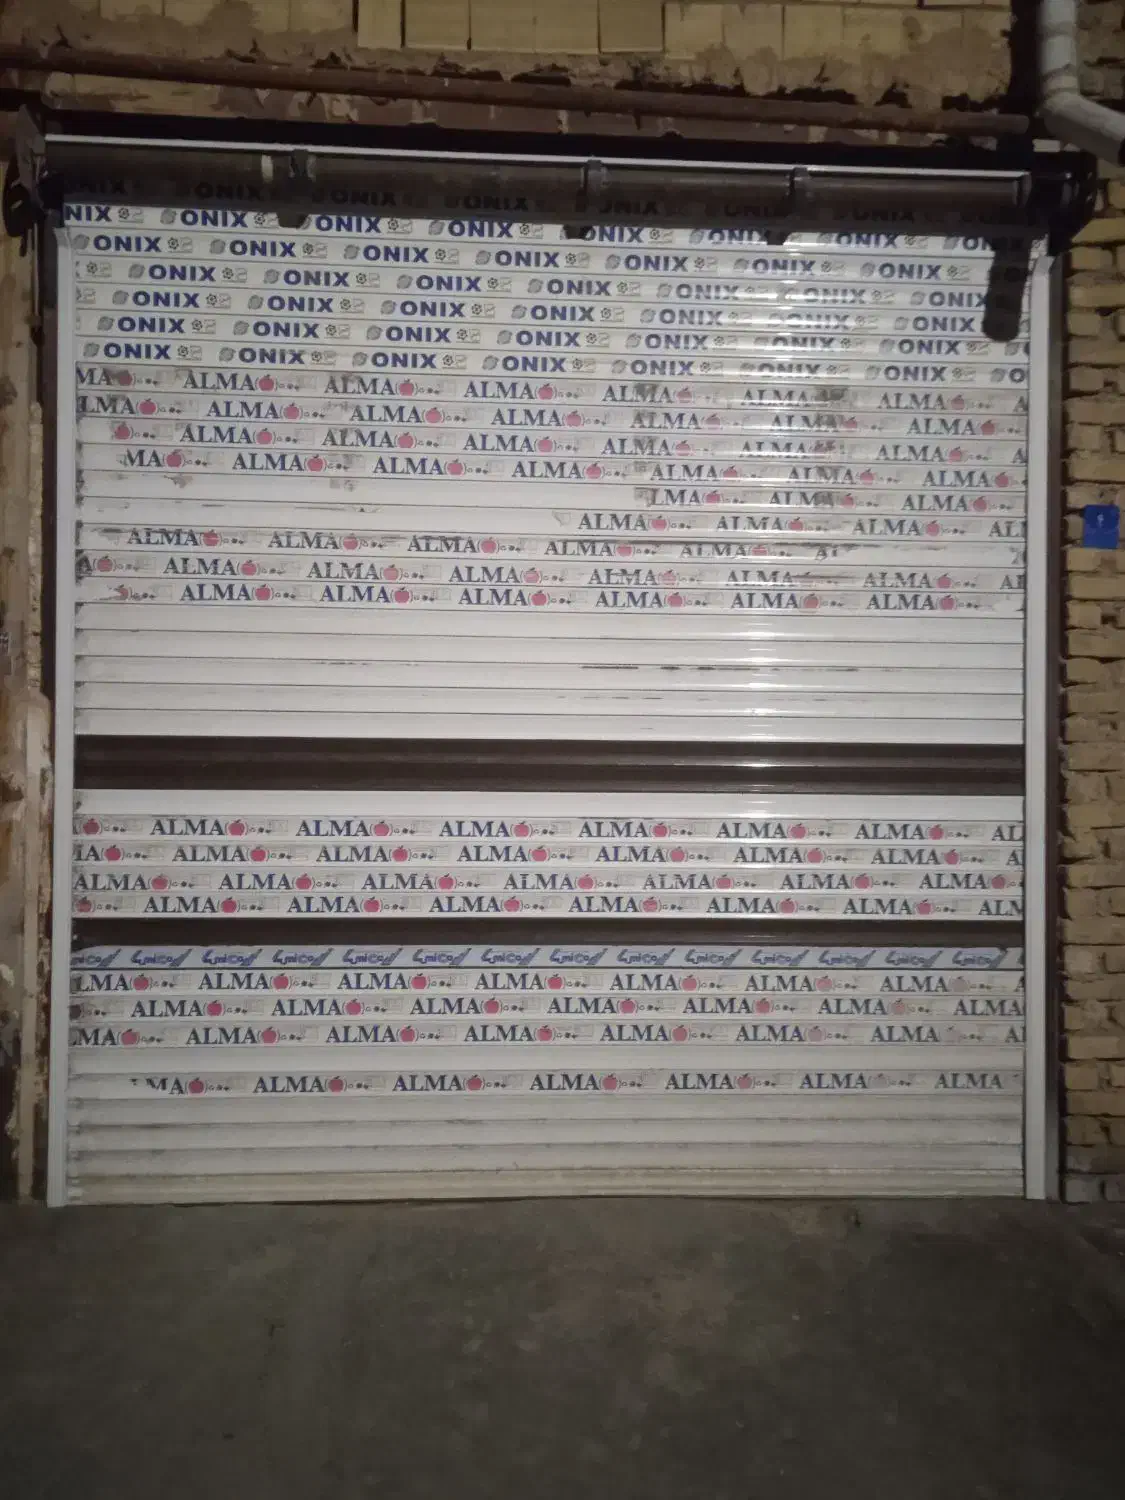 ONIX ONIX ONIX ONIX ONIX ONIX
NIX ONIX ONIX ONIX ONIX ONIX ONIX
ONIX ONIX ONIX ONIX ONIX ONIX ONIX
ONIX ONIX ONIX ONIX ONIX ONIX ONIX
ONIX ONIX ONIX ONIX ONIX ONIX ONIX
ONIX ONIX ONIX ONIX ONIX ONIX ONIX
ONIX ONIX ONIX ONIX ONIX ONIX ONIX
MA ALMA ALMA ALMA ALMA ALMA ALMA
LMA ALMA ALMA ALMA ALMA ALMA ALMA
ALMA ALMA ALMA ALMA ALMA ALMA
MA ALMA ALMA ALMA ALMA ALMA ALMA
LMA ALMA ALMA
ALMA ALMA ALMA AL
ALMA ALMA ALMA ALMA ALMA
ALMA ALMA ALMA ALMA ALMA ALMA
ALMA ALMA ALMA ALMA ALMA ALMA
ALMA ALMA ALMA ALMA ALMA ALMA AL
ALMA ALMA ALMA ALMA ALMA ALMA
ALMA ALMA ALMA ALMA ALMA ALMA ALMA
ALMA ALMA ALMA ALMA ALMA ALMA AL
LMA ALMA ALMA ALMA ALMA ALMA ALMA
ALMA ALMA ALMA ALMA ALMA ALMA ALMA
MA ALMA ALMA ALMA ALMA ALMA ALMA
MA ALMA ALMA ALMA ALMA ALMA ALMA